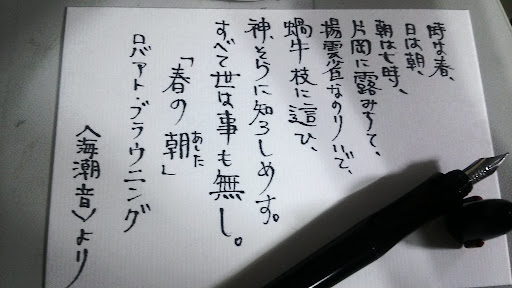 時は春、
日は朝、
朝は七時、
片岡に露みちて、
揚雲雀なのりいで、
蝸牛枝に這ひ、
神、そらに知ろしめす。
すべて世は事も無し。
「春の朝」
あした
ロバアト・ブラウニング
〈海潮音〉より